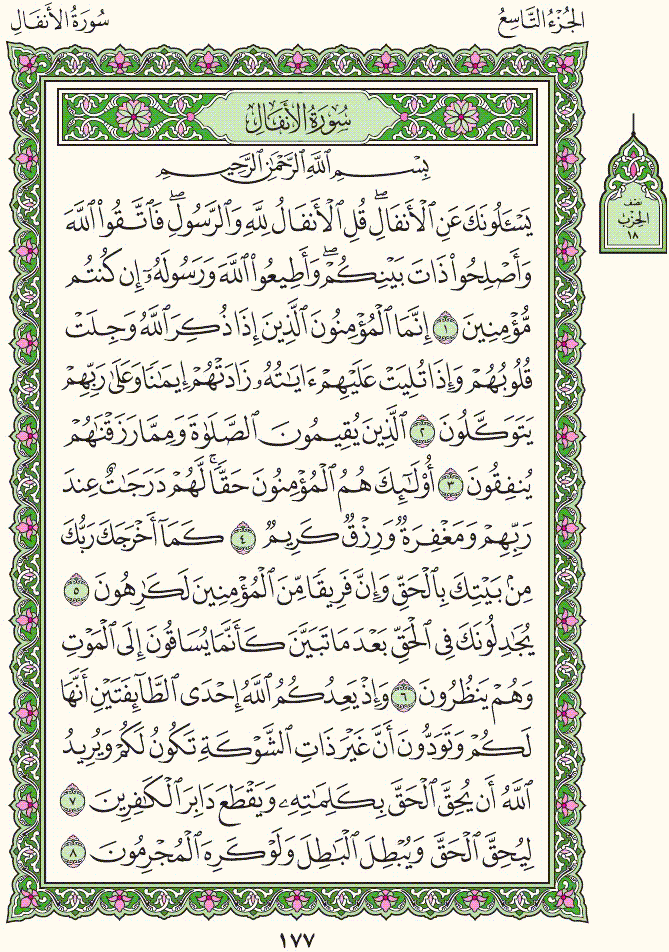 الجُزْءُ التَّاسِعُ
سُورَةُ الأَنفَالِ
سُورَةُ الأَنفَالِ
نصف
الحزب
١٨
بِسْمِ ٱللَّهِ ٱلرَّحْمَٰنِ ٱلرَّحِيمِ
يَسْـَٔلُونَكَ عَنِ ٱلْأَنفَالِۖ قُلِ ٱلْأَنفَالُ لِلَّهِ وَٱلرَّسُولِۖ فَٱتَّقُوا۟ ٱللَّهَ
وَأَصْلِحُوا۟ ذَاتَ بَيْنِكُمْۖ وَأَطِيعُوا۟ ٱللَّهَ وَرَسُولَهُۥٓ إِن كُنتُم
مُّؤْمِنِينَ ١ إِنَّمَا ٱلْمُؤْمِنُونَ ٱلَّذِينَ إِذَا ذُكِرَ ٱللَّهُ وَجِلَتْ
قُلُوبُهُمْ وَإِذَا تُلِيَتْ عَلَيْهِمْ ءَايَٰتُهُۥ زَادَتْهُمْ إِيمَٰنًا وَعَلَىٰ رَبِّهِمْ
يَتَوَكَّلُونَ ٢ ٱلَّذِينَ يُقِيمُونَ ٱلصَّلَوٰةَ وَمِمَّا رَزَقْنَٰهُمْ
يُنفِقُونَ ٣ أُو۟لَٰٓئِكَ هُمُ ٱلْمُؤْمِنُونَ حَقًّاۚ لَّهُمْ دَرَجَٰتٌ عِندَ
رَبِّهِمْ وَمَغْفِرَةٌ وَرِزْقٌ كَرِيمٌ ٤ كَمَآ أَخْرَجَكَ رَبُّكَ
مِنۢ بَيْتِكَ بِٱلْحَقِّ وَإِنَّ فَرِيقًا مِّنَ ٱلْمُؤْمِنِينَ لَكَٰرِهُونَ ٥
يُجَٰدِلُونَكَ فِى ٱلْحَقِّ بَعْدَ مَا تَبَيَّنَ كَأَنَّمَا يُسَاقُونَ إِلَى ٱلْمَوْتِ
وَهُمْ يَنظُرُونَ ٦ وَإِذْ يَعِدُكُمُ ٱللَّهُ إِحْدَى ٱلطَّآئِفَتَيْنِ أَنَّهَا
لَكُمْ وَتَوَدُّونَ أَنَّ غَيْرَ ذَاتِ ٱلشَّوْكَةِ تَكُونُ لَكُمْ وَيُرِيدُ
ٱللَّهُ أَن يُحِقَّ ٱلْحَقَّ بِكَلِمَٰتِهِۦ وَيَقْطَعَ دَابِرَ ٱلْكَٰفِرِينَ ٧
لِيُحِقَّ ٱلْحَقَّ وَيُبْطِلَ ٱلْبَٰطِلَ وَلَوْ كَرِهَ ٱلْمُجْرِمُونَ ٨
١٧٧